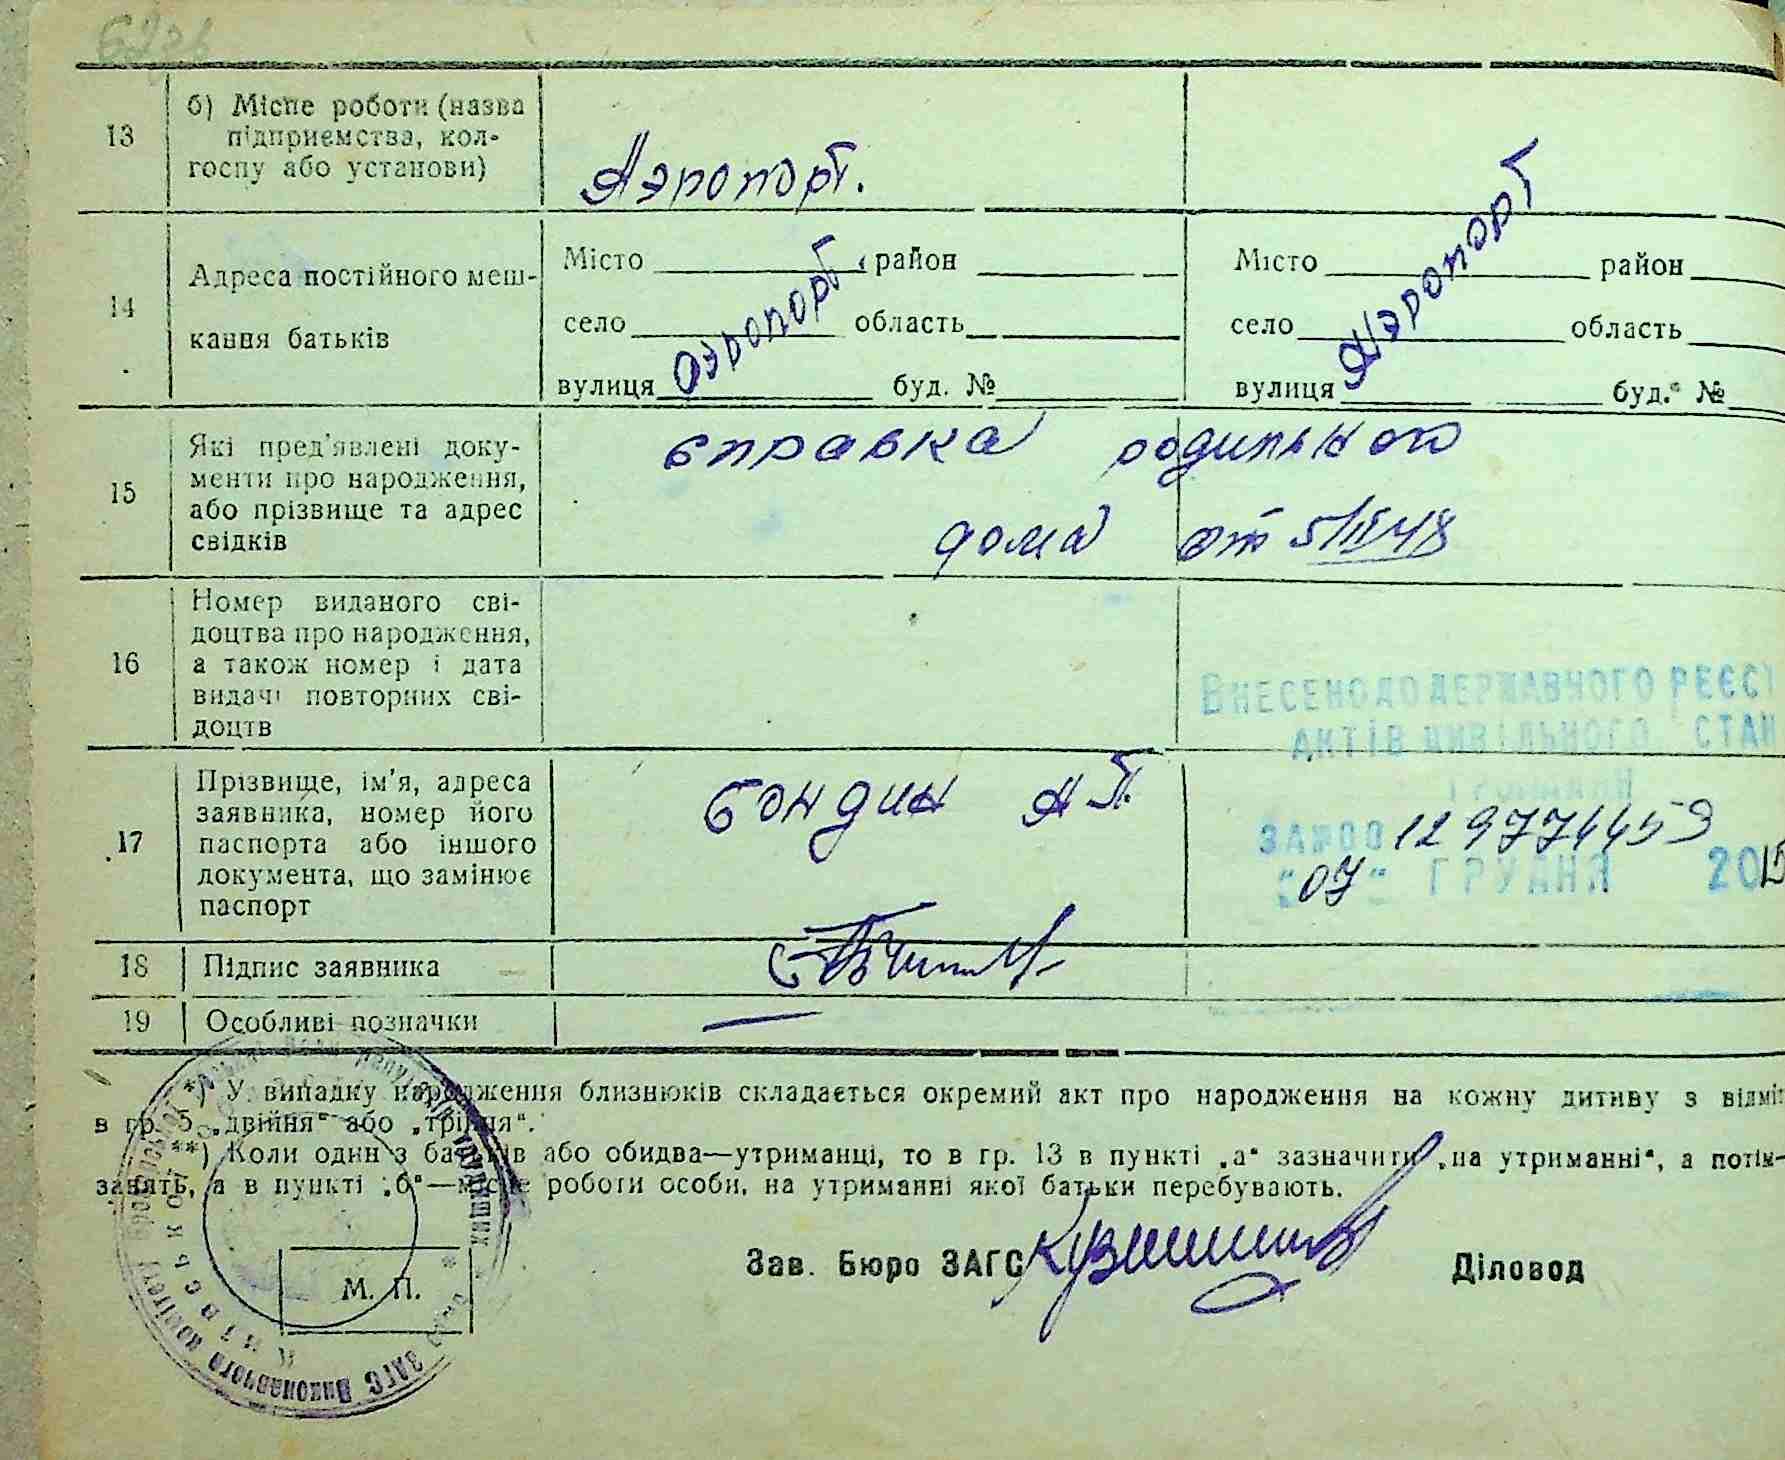 13
б) Місце роботи (назва
підприємства, кол-
госпу або установи)
Аэропорт.
14
Адреса постійного меш-
кання батьків
Місто район
село область
вулиця аэропорт буд. №
Місто район
село область
вулиця Аэропорт буд. №
15
Які пред'явлені доку-
менти про народження,
або прізвище та адрес
свідків
справка родильного
дома от 5/III 48
16
Номер виданого сві-
доцтва про народження,
а також номер і дата
видачі повторних сві-
доцтв
Внесено до державного реєст
актів цивільного стан
громадян
за №00 129774459
"07" грудня 2015
17
Прізвище, ім'я, адреса
заявника, номер його
паспорта або іншого
документа, що замінює
паспорт
Бондин А П.
18
Підпис заявника
19
Особливі позначки
*) У випадку народження близнюків складається окремий акт про народження на кожну дитину з відміт
в гр. 5 „двійня“ або „трійня“.
**) Коли один з батьків або обидва—утриманці, то в гр. 13 в пункті „а“ зазначити „на утриманні“, а потім—
занять, а в пункті „б“—місце роботи особи, на утриманні якої батьки перебувають.
Зав. Бюро ЗАГС
Діловод
М. П.
ЗАГС Виконавчого комітету
Київської